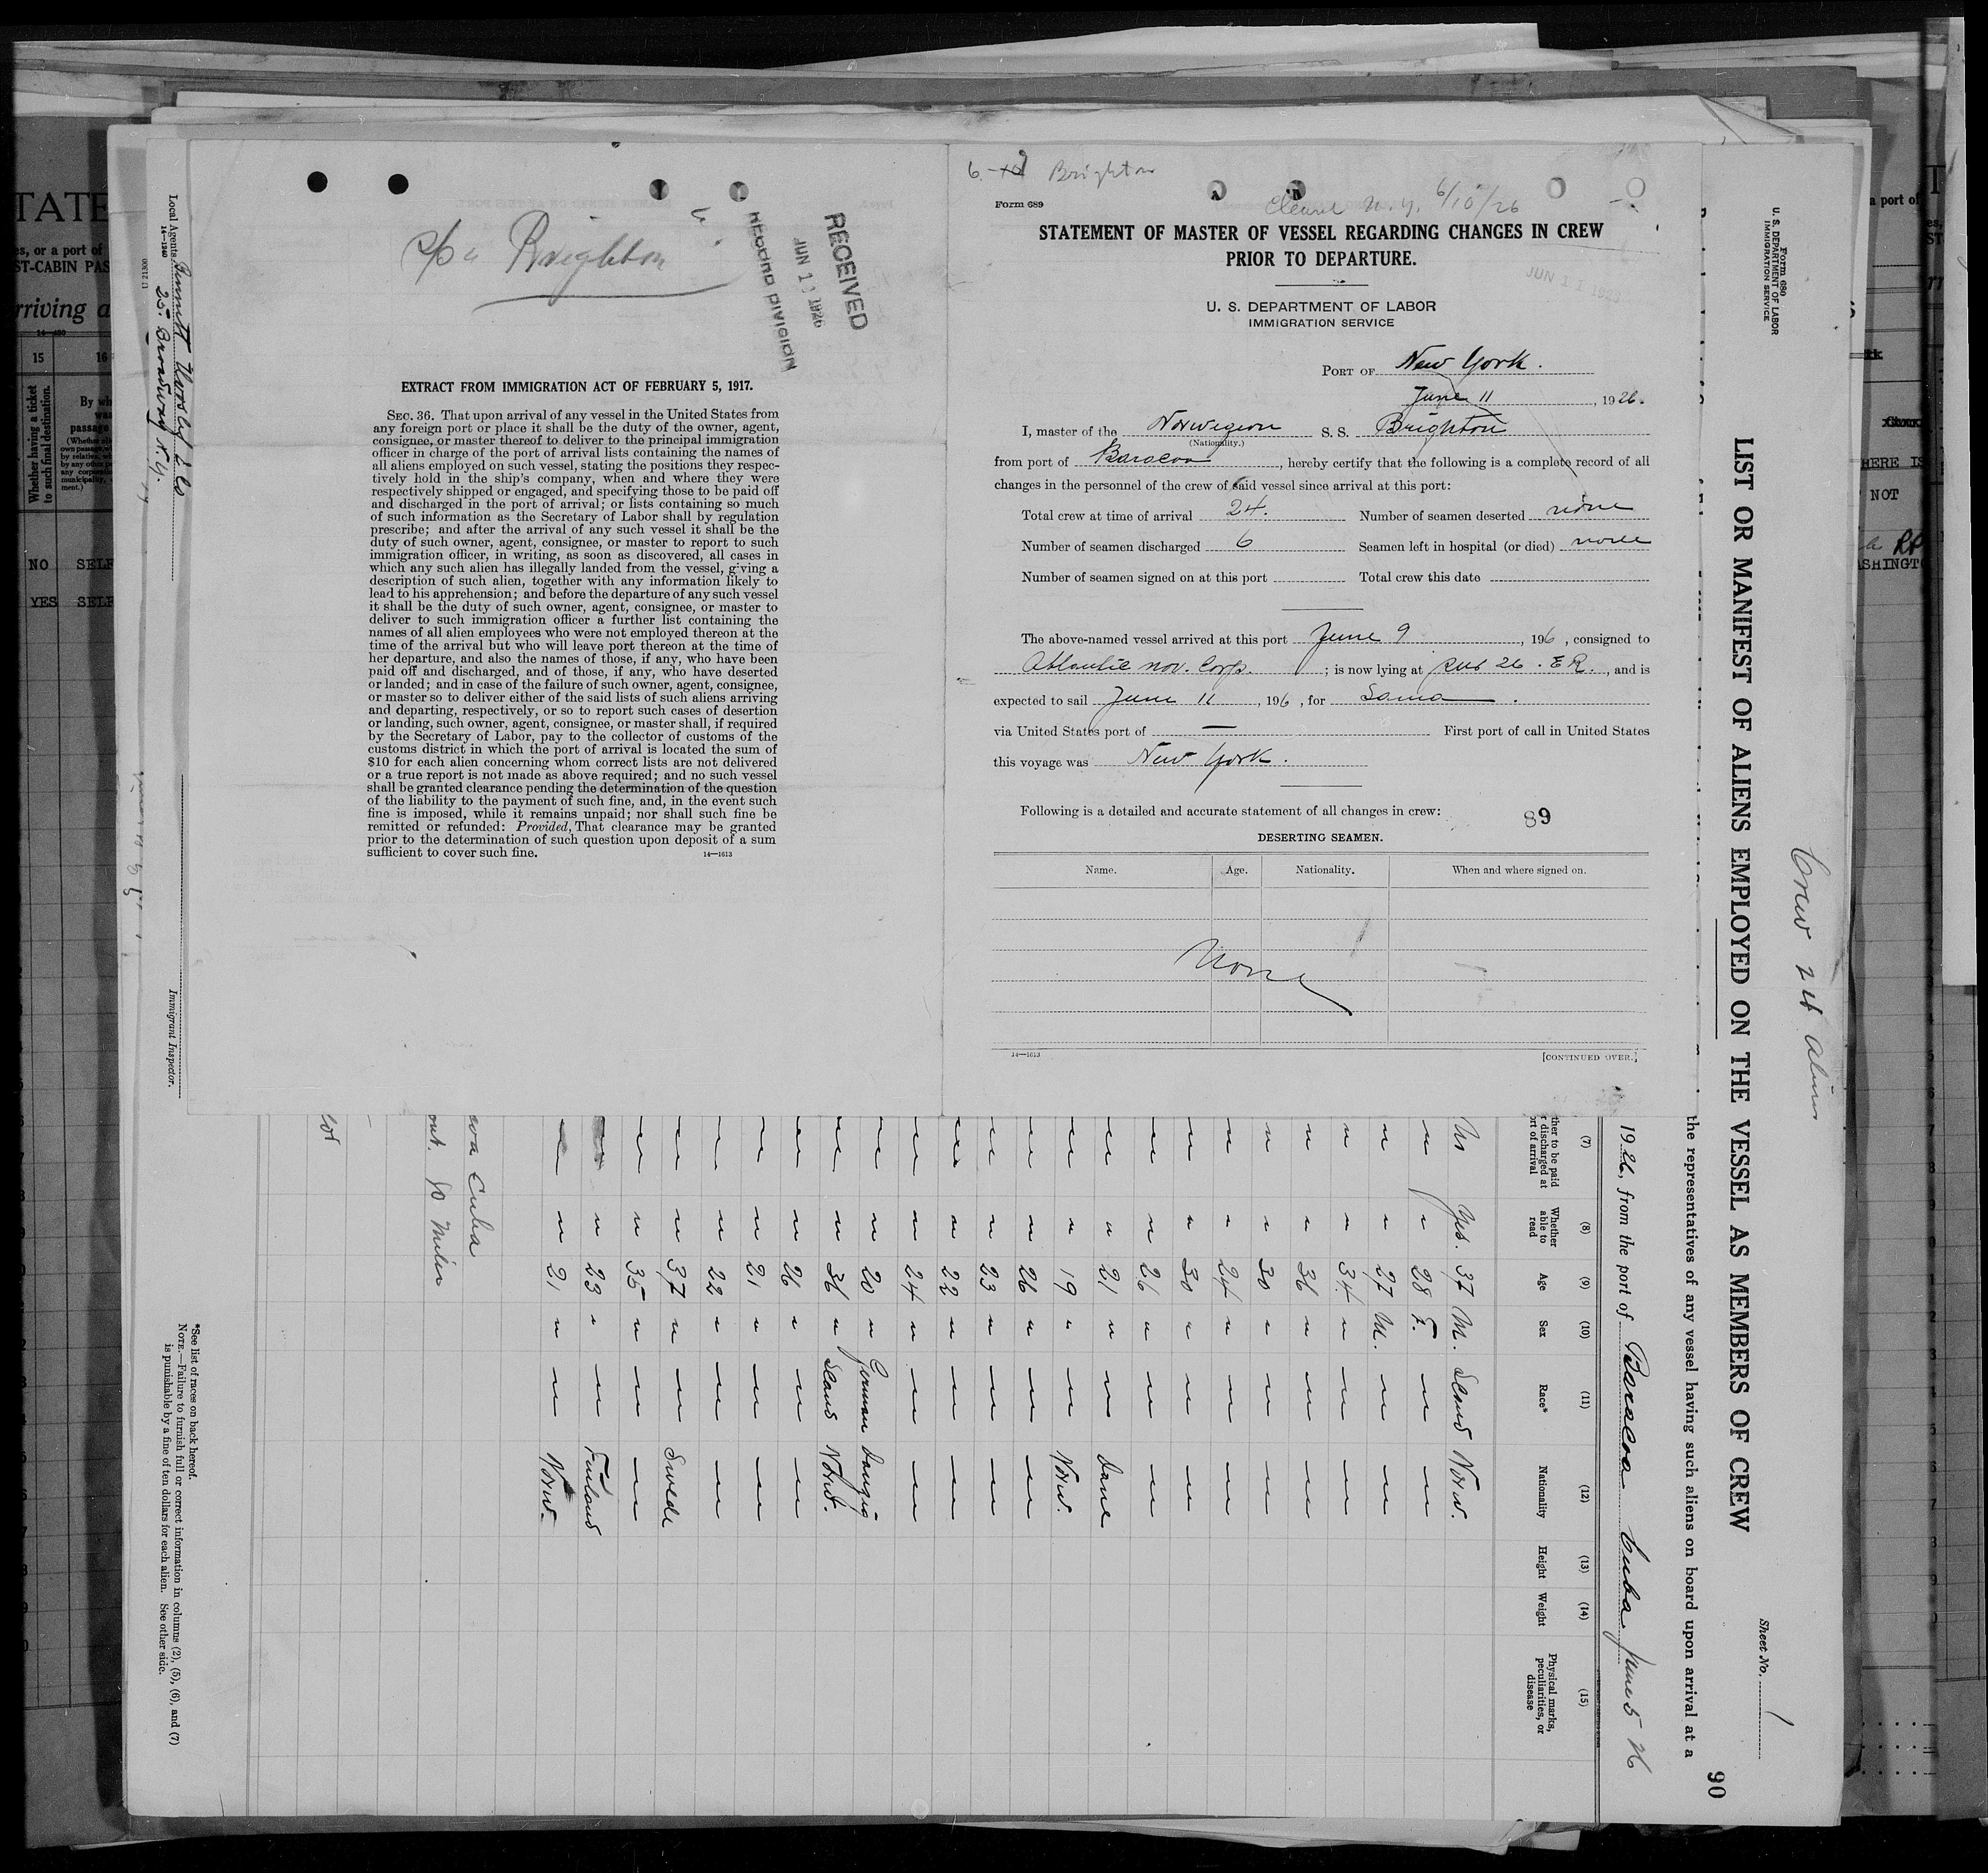 6-
Brighton
Form 689
N.Y. 6/10/26
STATEMENT OF MASTER OF VESSEL REGARDING CHANGES IN CREW
PRIOR TO DEPARTURE.
JUN 11 1926
U. S. DEPARTMENT OF LABOR
IMMIGRATION SERVICE
PORT OF New York.
June 11, 1926.
I, master of the Norwegian S. S. Brighton
(Nationality.)
from port of Baracoa, hereby certify that the following is a complete record of all
changes in the personnel of the crew of said vessel since arrival at this port:
Total crew at time of arrival 24. Number of seamen deserted none
Number of seamen discharged 6 Seamen left in hospital (or died) none
Number of seamen signed on at this port Total crew this date
The above-named vessel arrived at this port June 9, 196, consigned to
Atlantic nav. Corp.; is now lying at 26. E R., and is
expected to sail June 11, 196, for Sama.
via United States port of — First port of call in United States
this voyage was New York.
Following is a detailed and accurate statement of all changes in crew:
89
DESERTING SEAMEN.
Name. Age. Nationality. When and where signed on.
None
14—1613
[CONTINUED OVER.]
Brighton
RECEIVED
JUN 11 1926
RECORD DIVISION
EXTRACT FROM IMMIGRATION ACT OF FEBRUARY 5, 1917.
SEC. 36. That upon arrival of any vessel in the United States from
any foreign port or place it shall be the duty of the owner, agent,
consignee, or master thereof to deliver to the principal immigration
officer in charge of the port of arrival lists containing the names of
all aliens employed on such vessel, stating the positions they respec-
tively hold in the ship's company, when and where they were
respectively shipped or engaged, and specifying those to be paid off
and discharged in the port of arrival; or lists containing so much
of such information as the Secretary of Labor shall by regulation
prescribe; and after the arrival of any such vessel it shall be the
duty of such owner, agent, consignee, or master to report to such
immigration officer, in writing, as soon as discovered, all cases in
which any such alien has illegally landed from the vessel, giving a
description of such alien, together with any information likely to
lead to his apprehension; and before the departure of any such vessel
it shall be the duty of such owner, agent, consignee, or master to
deliver to such immigration officer a further list containing the
names of all alien employees who were not employed thereon at the
time of the arrival but who will leave port thereon at the time of
her departure, and also the names of those, if any, who have been
paid off and discharged, and of those, if any, who have deserted
or landed; and in case of the failure of such owner, agent, consignee,
or master so to deliver either of the said lists of such aliens arriving
and departing, respectively, or so to report such cases of desertion
or landing, such owner, agent, consignee, or master shall, if required
by the Secretary of Labor, pay to the collector of customs of the
customs district in which the port of arrival is located the sum of
$10 for each alien concerning whom correct lists are not delivered
or a true report is not made as above required; and no such vessel
shall be granted clearance pending the determination of the question
of the liability to the payment of such fine, and, in the event such
fine is imposed, while it remains unpaid; nor shall such fine be
remitted or refunded: Provided, That clearance may be granted
prior to the determination of such question upon deposit of a sum
sufficient to cover such fine.
14—1613
Form 680
U. S. DEPARTMENT OF LABOR
IMMIGRATION SERVICE
Crew 24 aliens
Sheet No. 1
90
LIST OR MANIFEST OF ALIENS EMPLOYED ON THE VESSEL AS MEMBERS OF CREW
the representatives of any vessel having such aliens on board upon arrival at a
1926, from the port of Baracoa Cuba June 5 26
(7) (8) (9) (10) (11) (12) (13) (14) (15)
ther to be paid
discharged at
ort of arrival
Whether
able to
read
Age
Sex
Race*
Nationality
Height
Weight
Physical marks,
peculiarities, or
disease
Yes. 37 M. Scand Norw.
" " 28 F. " "
" " 27 M. " "
" " 34 " " "
" " 36 " " "
" " 30 " " "
" " 24 " " "
" " 30 " " "
" " 26 " " "
" " 21 " " Dane
" " 19 " " Norw.
" " 26 " " "
" " 23 " " "
" " 22 " " "
" " 24 " " "
" " 20 " German Danzig
" " 36 " Scand Norw.
" " 26 " " "
" " 21 " " "
" " 22 " " "
" " 37 " " Swede
" " 35 " " "
" " 23 " " Finland
" " 21 " " Norw.
Cuba
*See list of races on back hereof.
NOTE.—Failure to furnish full or correct information in columns (2), (5), (6), and (7)
is punishable by a fine of ten dollars for each alien. See other side.
Local Agents Bennett & Co
14—1240
25 Broadway N.Y.
Immigrant Inspector.
TATE
es, or a port of
ST-CABIN PAS
rriving a
15 16
Whether having a ticket
to such final destination.
NO SELF
YES SELF
a port of
HERE IS
NOT
ASHINGT